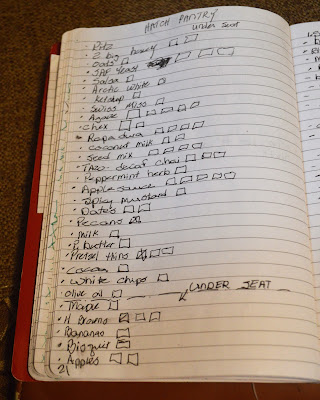 HATCH PANTRY
under seat
• Ritz
• 2 big honey
• Oats
• SAF yeast
• Salsa
• Arctic white
• Ketchup
• Swiss Miss
• Agave
• Chex
• Rapadura
• coconut milk
• Seed mix
• TAZO - decaf chai
• Peppermint herb
• Apple sauce
• Spicy mustard
• Dates
• Pecans
• Milk
• P. butter
• Pretzel thins
• Cocoa
• White chips
UNDER SEAT
• olive oil
• H Browns
• Bananas
• Bisquit
• Apples